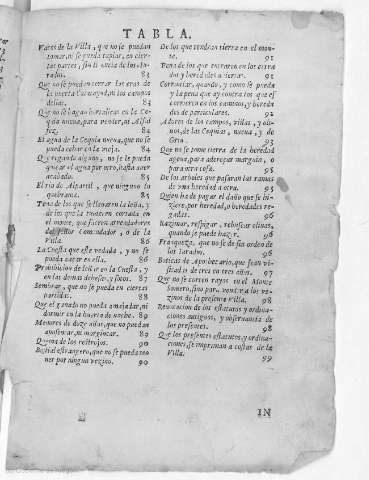 TABLA.
Vazes de la Villa, que no se puedan
tomar, ni se pueda tapiar, en cier-
tas partes, sin licencia de los Iu-
rados. 83
Que no se puedan cerrar las eras de
la huerta
delias. 84
Que no se hagan hortalizas en la Ce-
quia nueua, para vender, ni Alfal
fez. 84
El agua de la Cequia nueua, que no se
pueda echar en la vieja. 84
Que regando alguno, no se le pueda
quitar el agua, hasta auer
acabado. 85
El rio de Alpartil, que ninguno lo
quebrante. 85
Pena de los que se lleuaren la leña, y
de los que la traen cortada en
el monte, que fueren arrendadores
del señor Comendador, o de la
Villa. 86
La Cuesta que esté vedada, y no se
pueda cauar en ella. 86
Prohibicion de leñar en la Cuesta, y
en las demas debesas, y sotos. 87
Sembrar, que no se pueda en ciertas
partidas. 88
Que el ganado no pueda amajadar, ni
dormir en la huerta de noche. 89
Menores de doze años, que no puedan
ni marginear. 89
Quema de los restrojos. 90
Bestial estrangero, que no se pueda te-
ner por ningun vezino. 90
De los que tendran tierra en el mon-
te. 91
Pena de los que entraren en los cerra
dos y heredades a 92
Correntiar, quando, y como se pueda
y la pena que ay contra los que es
correren en los caminos, y hereda
des de particulares. 92
Adores de los campos, viñas, y oli-
uos, de las Cequias, nueua, y de
Gria. 93
Que no se tome tierra de la heredad
agena, para aderezar margain, o
para otra cosa. 95
De los arboles que passaran las ramas
de vna heredad a otra. 95
Quien ha de pagar el daño que se hi-
ziere, por heredad, o heredades re-
gadas. 96
Razimar, respigar, rebuscar oliuas,
quando se puede hazer. 96
Franqueza, que no se de sin orden de
los Iurados. 96
Boticas de Apotecario, que sean vi-
sitadas de tres en tres años. 97
Que no se corten rayos en el Monte
Somero, sino para los ve-
zinos de la presente Villa. 98
Reuocacion de los estatutos y ordina-
ciones antiguos, y obseruancia de
los presentes. 98
Que los presentes estatutos, y ordina-
ciones, se impriman a costas de la
Villa. 99
IN